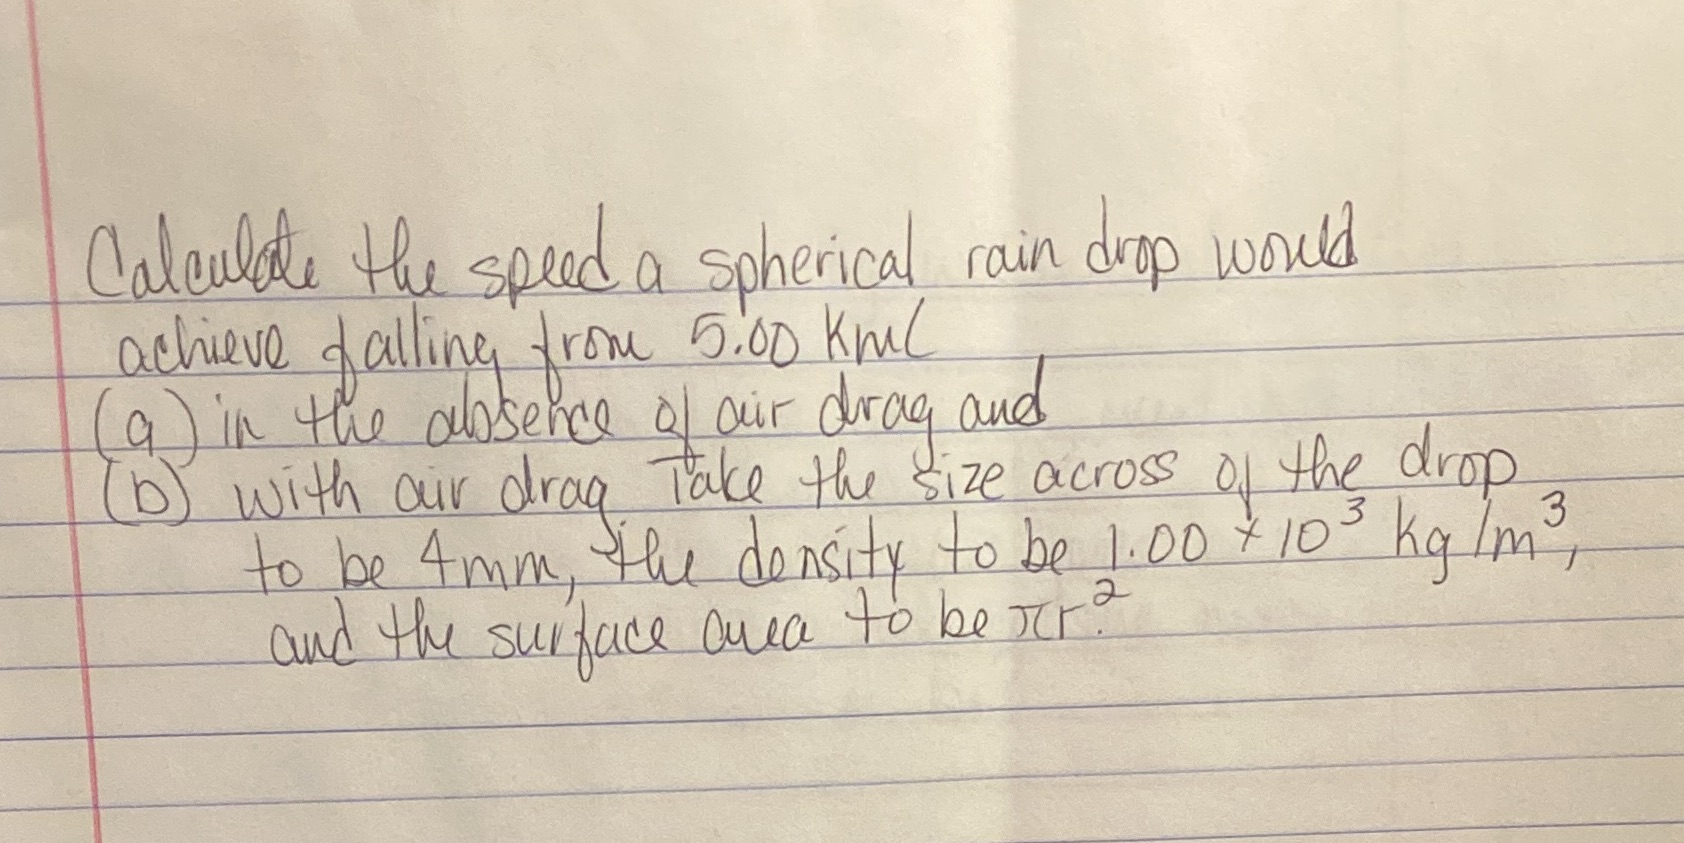 Calculate the speed a spherical rain drop would
achieve falling from 5.00 Km(
(a) in the absence of air drag and
(b) with air drag Take the size across of the drop
to be 4mm, the density to be 1.00 × 10³ kg/m³,
and the surface area to be πr².